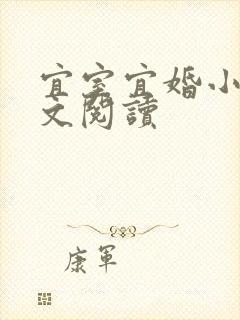 宜室宜婚小
文閱讀
康軍